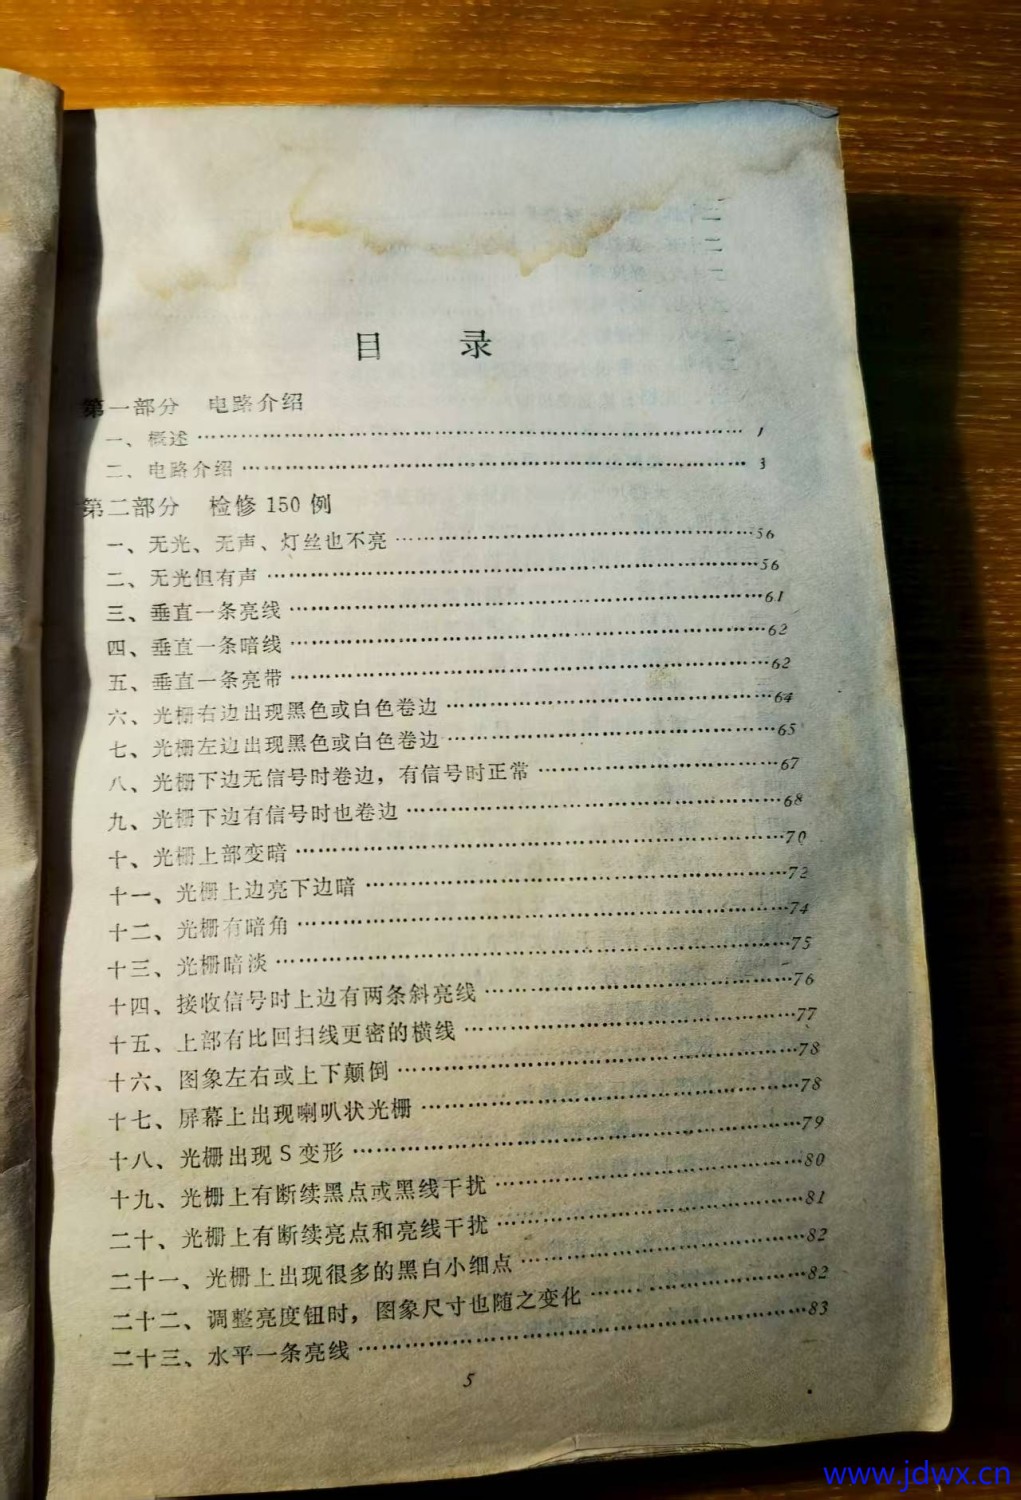 目 录
第一部分 电路介绍
一、概述……1
二、电路介绍……3
第二部分 检修 150 例
一、无光、无声、灯丝也不亮……56
二、无光但有声……56
三、垂直一条亮线……61
四、垂直一条暗线……62
五、垂直一条亮带……62
六、光栅右边出现黑色或白色卷边……64
七、光栅左边出现黑色或白色卷边……65
八、光栅下边无信号时卷边，有信号时正常……67
九、光栅下边有信号时也卷边……68
十、光栅上部变暗……70
十一、光栅上边亮下边暗……72
十二、光栅有暗角……74
十三、光栅暗淡……75
十四、接收信号时上边有两条斜亮线……76
十五、上部有比回扫线更密的横线……77
十六、图象左右或上下颠倒……78
十七、屏幕上出现喇叭状光栅……78
十八、光栅出现S变形……79
十九、光栅上有断续黑点或黑线干扰……80
二十、光栅上有断续亮点和亮线干扰……81
二十一、光栅上出现很多的黑白小细点……82
二十二、调整亮度钮时，图象尺寸也随之变化……82
二十三、水平一条亮线……83
5
www.jdwx.cn